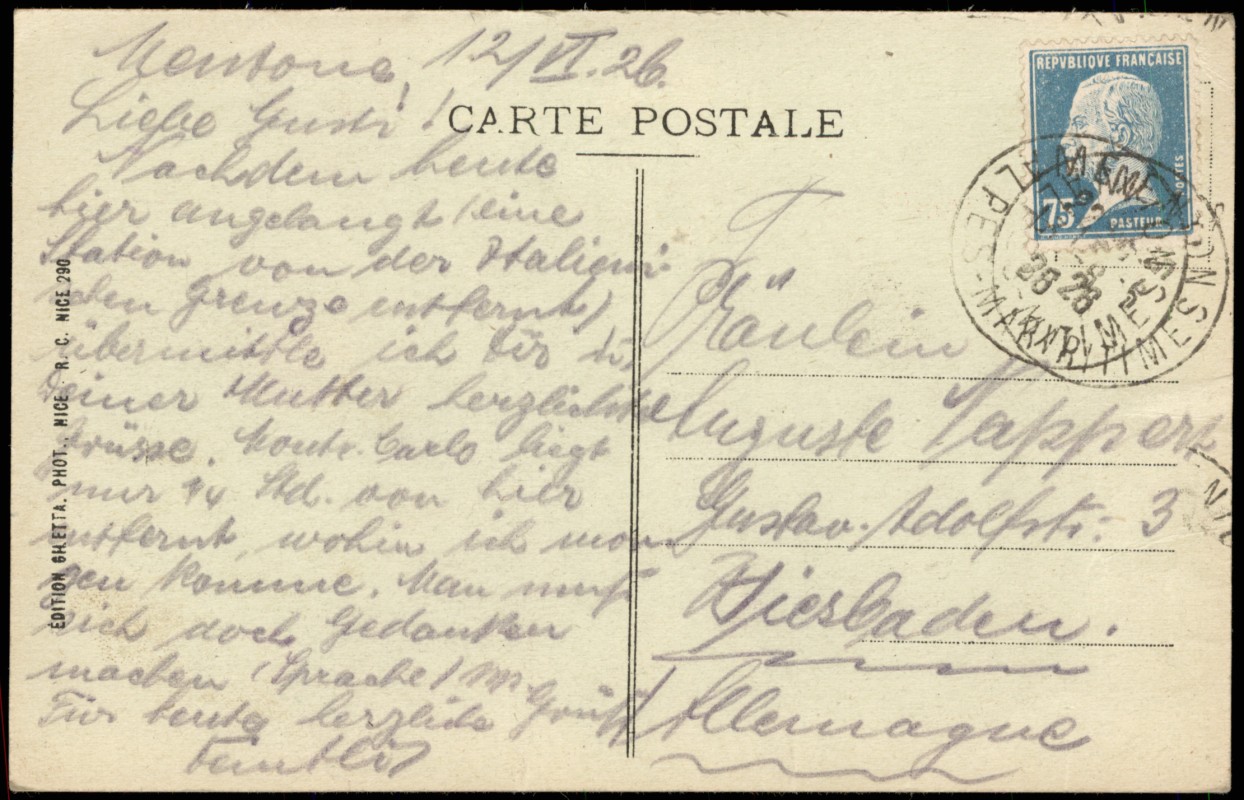 Mentone, 12/VI.26.
Liebe Gusti!
Nachdem heute
hier angelangt (eine
Station von der Italieni-
schen Grenze entfernt)
übermittle ich Dir u.
Deiner Mutter herzlichste
Grüsse. Monte Carlo liegt
nur ¼ Std. von hier
entfernt wohin ich mor
gen komme. Man muß
sich doch Gedanken
machen (Sprache)
Für heute herzliche Grüße
CARTE POSTALE
EDITION GILETTA. PHOT., NICE. R. C. NICE 290
REPVBLIQUE FRANÇAISE
75
POSTES
PASTEUR
MENTON
ALPES-MARITIMES
26
Fräulein
Auguste Tappert
Gustav-Adolfstr. 3
Wiesbaden.
Allemagne